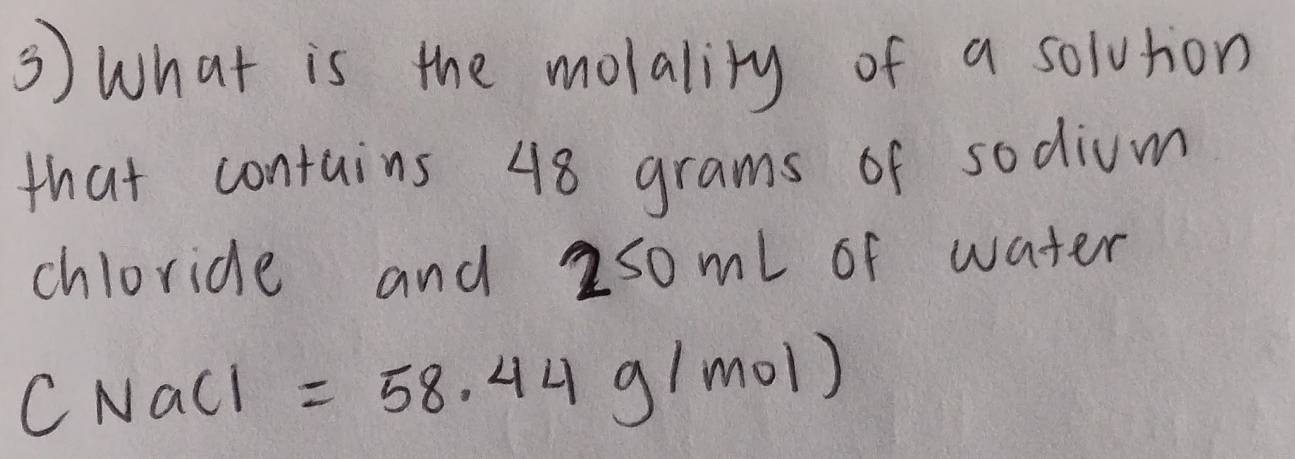 3) What is the molality of a solution
that contains 48 grams of sodium
chloride and 250 mL of water
(NaCl = 58.44 g/mol)